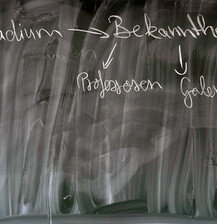 adium → Bekannthe
Professoren Galer